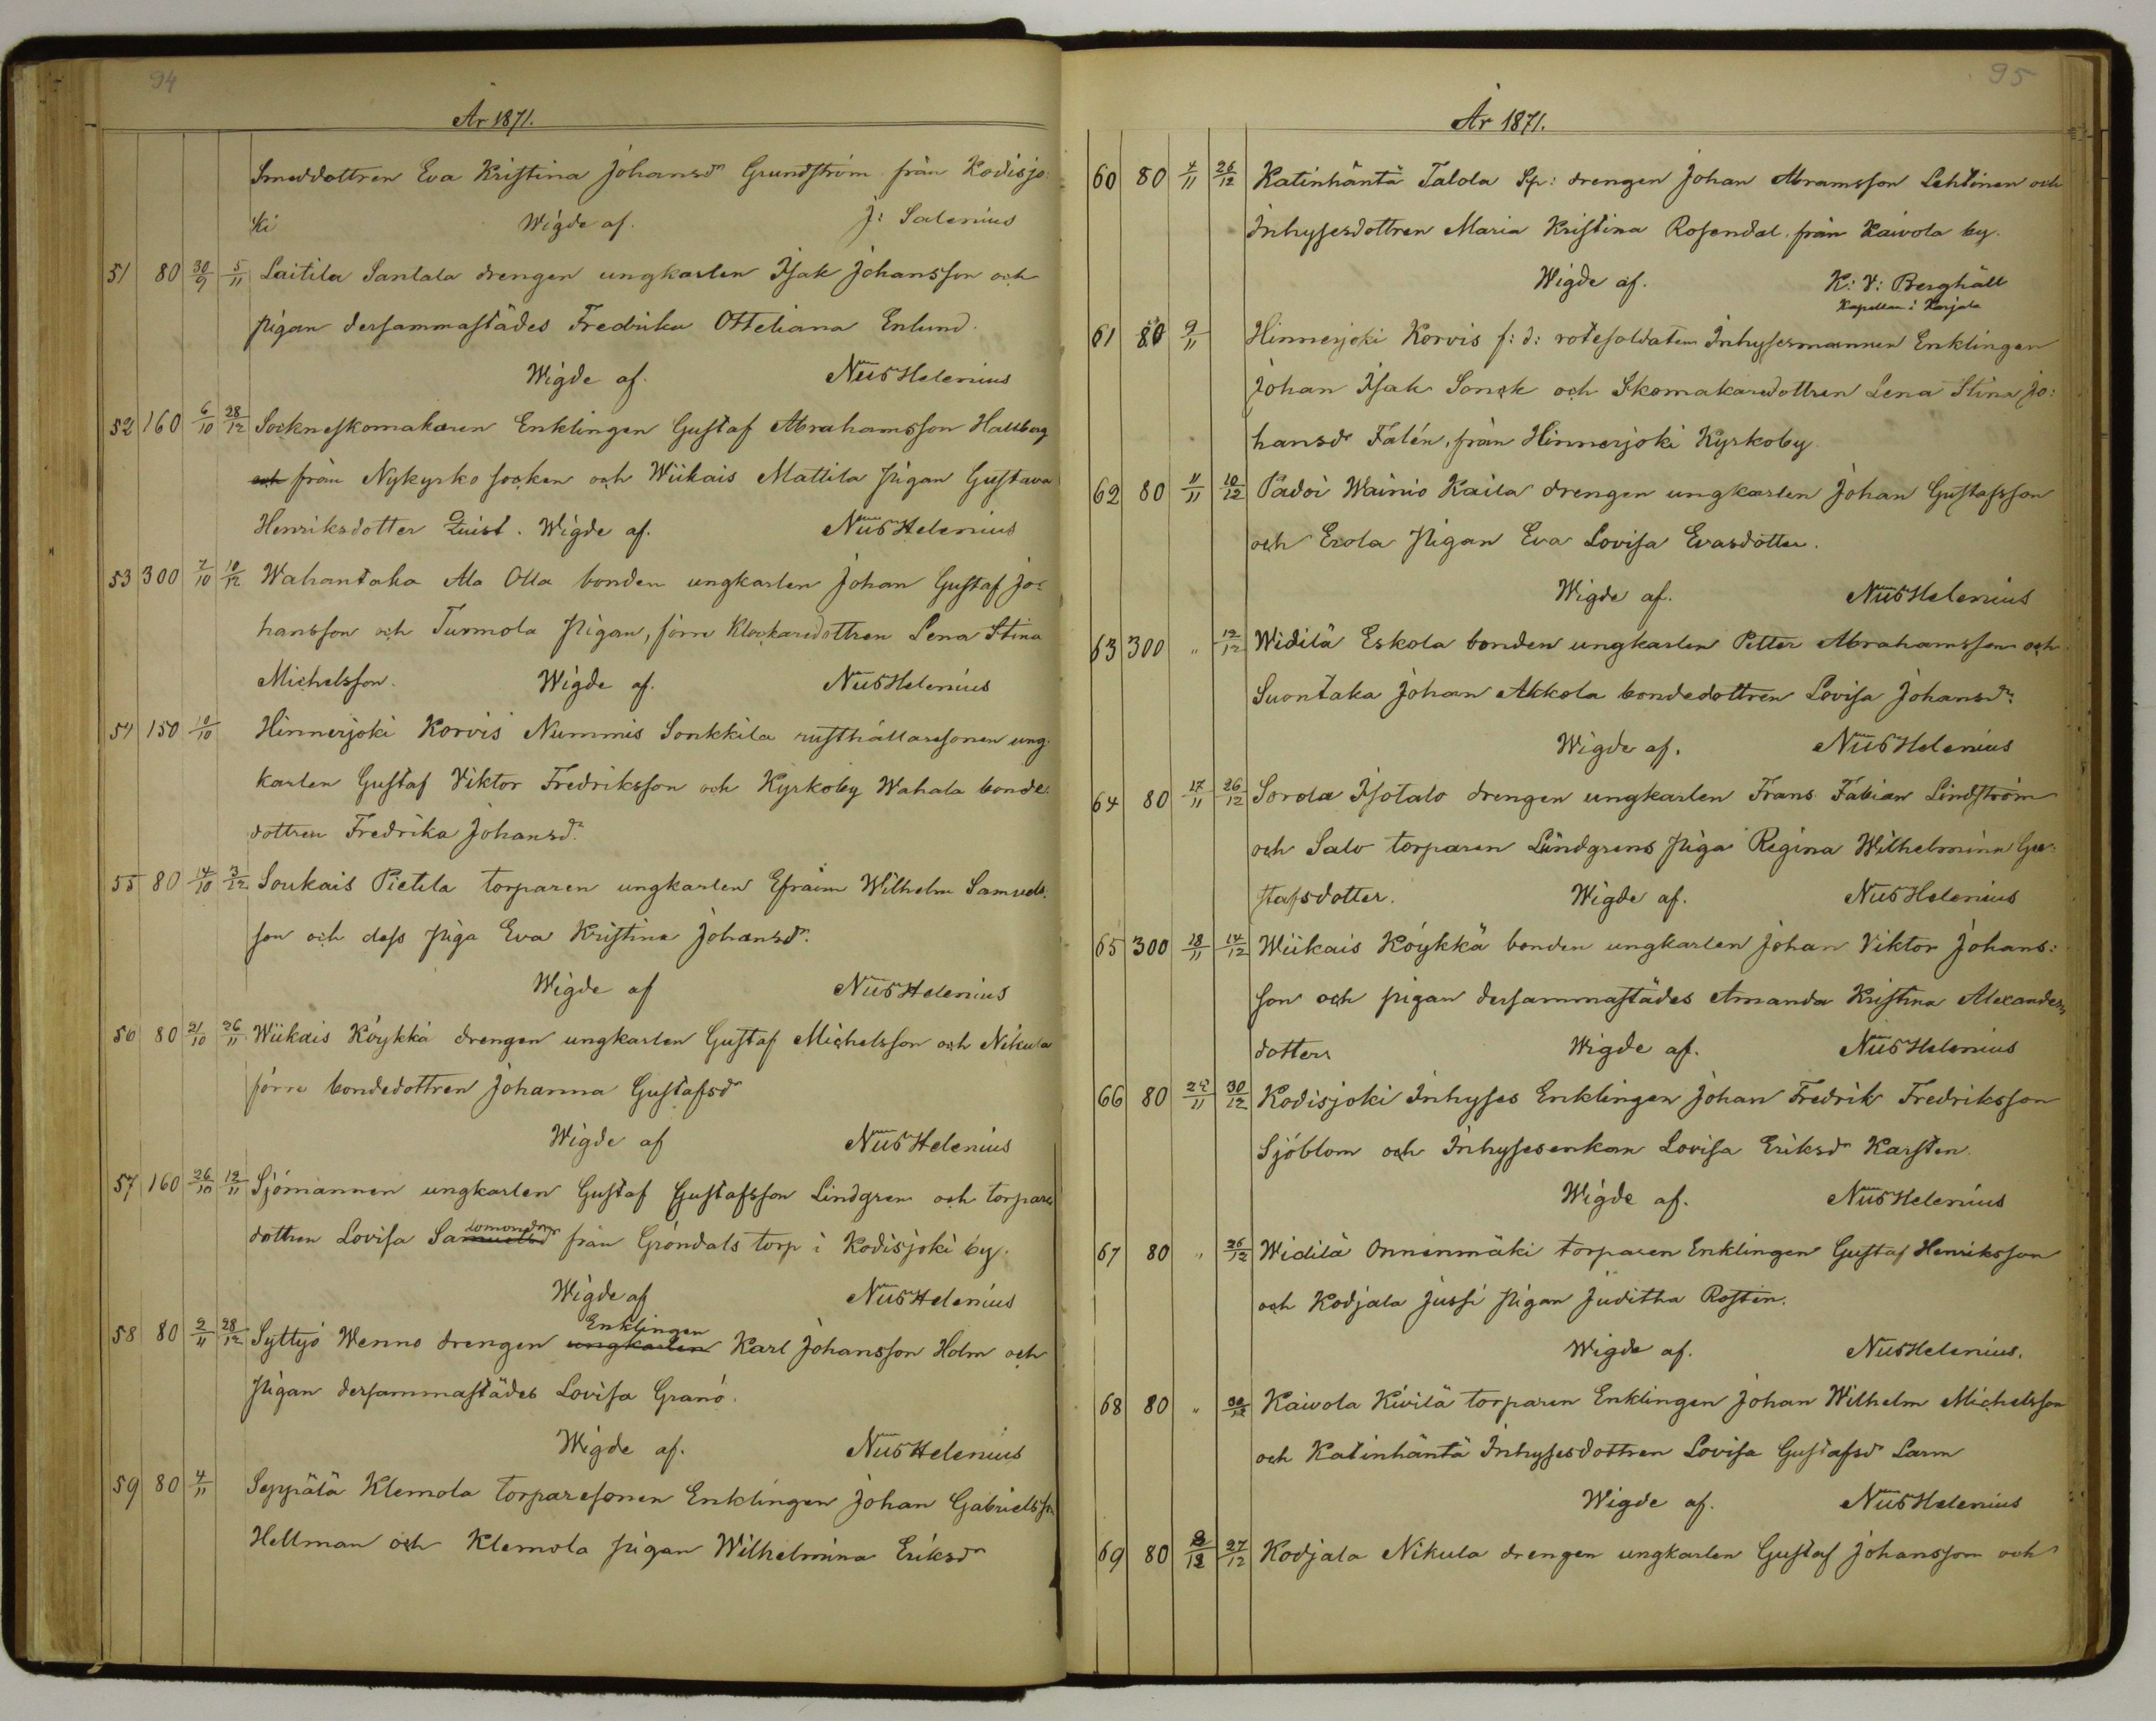 94
År 1871.
Smeddottren Eva Kristina Johansdr Grundström från Kodisjo:
ki Wigde af. J: Salenius
51 80 30/9 5/11 Laitila Santala drengen ungkarlen Isak Johansson och
pigan dersammastädes Fredrika Otteliana Enlund.
Wigde af. Nils Helenius
52 160 6/10 28/12 Sockneskomakaren Enklingen Gustaf Abrahamsson Hallberg
och från Nykyrko socken och Wiikais Mattila Pigan Gustava
Henriksdotter Quist. Wigde af. Nils Helenius
53 300 7/10 10/12 Wahantaka Ala Olla bonden ungkarlen Johan Gustaf Jo:
hansson och Turmola Pigan, förre Klockaredottren Lena Stina
Michelsson. Wigde af. Nils Helenius
54 150 10/10 Hinnerjoki Korvis Nummis Sonkkila rusthållaresonen ung:
karlen Gustaf Viktor Fredriksson och Kyrkoby Wahala bonde:
dottren Fredrika Johansdr
55 80 14/10 3/12 Soukais Pietila torparen ungkarlen Efraim Wilhelm Samuels:
son och dess Piga Eva Kristina Johansdr.
Wigde af Nils Helenius
56 80 21/10 26/11 Wiikais Köykkä drengen ungkarlen Gustaf Michelsson och Nikula
förre bondedottren Johanna Gustafsdr
Wigde af Nils Helenius
57 160 26/10 12/11 Sjömannen ungkarlen Gustaf Gustafsson Lindgren och torpare
dottren Lovisa Salomonsdr från Gröndals torp i Kodisjoki by.
Wigde af Nils Helenius
Enklingen
58 80 2/11 28/12 Syttyö Wenno drengen ungkarlen Karl Johansson Holm och
Pigan dersammastädes Lovisa Granö.
Wigde af. Nils Helenius
59 80 4/11 Seppälä Klemola torparesonen Enklingen Johan Gabrielsson
Hellman och Klemola pigan Wilhelmina Eriksdr
95
År 1871.
60 80 4/11 26/12 Katinhäntä Talola Sp: drengen Johan Abramsson Lehtinen och
Inhysesdottren Maria Kristina Rosendal från Kaivola by.
Wigde af. K: V: Berghäll
Kapellan i Karjala
61 80 9/11 Hinnerjoki Korvis f: d: rotesoldaten Inhysesmannen Enklingen
Johan Isak Sonck och Skomakaredottren Lena Stina Jo:
hansdr Falén, från Hinnerjoki Kyrkoby.
62 80 11/11 10/12 Padoi Wainio Kaila drengen ungkarlen Johan Gustafsson
och Erola Pigan Eva Lovisa Evasdotter.
Wigde af. Nils Helenius
63 300 " 12/12 Widilä Eskola bonden ungkarlen Petter Abrahamsson och
Suontaka Johan Akkola bondedottren Lovisa Johansdr
Wigde af. Nils Helenius
64 80 17/11 26/12 Sorola Isotalo drengen ungkarlen Frans Fabian Lindström
och Salo torparen Lindgrens Piga Regina Wilhelmina Gu:
stafsdotter. Wigde af. Nils Helenius
65 300 18/11 14/12 Wiikais Köykkä bonden ungkarlen Johan Viktor Johans:
son och pigan dersammastädes Amanda Kristina Alexanders
dotter Wigde af. Nils Helenius
66 80 24/11 30/12 Kodisjoki Inhyses Enklingen Johan Fredrik Fredriksson
Sjöblom och Inhysesenkan Lovisa Eriksdr Karsten.
Wigde af. Nils Helenius
67 80 " 26/12 Widilä Onnenmäki torparen Enklingen Gustaf Henriksson
och Kodjala Jussi Pigan Juditha Rostin.
Wigde af. Nils Helenius.
68 80 " 30/12 Kaivola Kivilä torparen Enklingen Johan Wilhelm Michelsson
och Katinhäntä Inhysesdottren Lovisa Gustafsdr Larm
Wigde af. Nils Helenius
69 80 2/12 27/12 Kodjala Nikula drengen ungkarlen Gustaf Johansson och